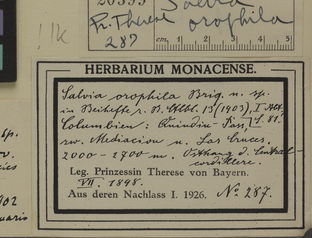 Salvia
Pr. Therese orophila
287
cm.
HERBARIUM MONACENSE.
Salvia orophila Briq. n. sp.
in Beihefte z. B. Ctbl. 13 (1903),
Columbien: Quindiu-Pass,
zw. Mediacion u. Las Cruces.
2000-2700 m. Osthang d. Central-
cordillere.
Leg. Prinzessin Therese von Bayern.
VII. 1898.
Aus deren Nachlass I. 1926. No 287.
sp.